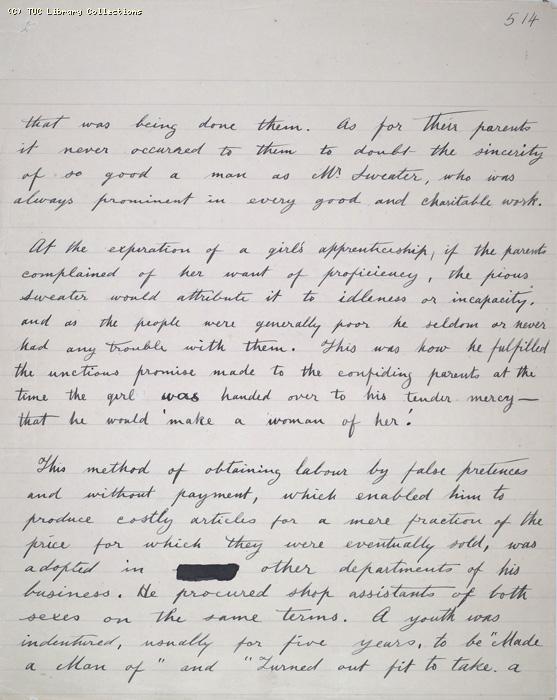 (C) TUC Library Collections
514
that was being done them. As for their parents
it never occurred to them to doubt the sincerity
of so good a man as Mr Sweater, who was
always prominent in every good and charitable work.
At the expiration of a girl's apprenticeship, if the parents
complained of her want of proficiency, the pious
Sweater would attribute it to idleness or incapacity,
and as the people were generally poor he seldom or never
had any trouble with them. This was how he fulfilled
the unctious promise made to the confiding parents at the
time the girl was handed over to his tender mercy—
that he would 'make a woman of her'.
This method of obtaining labour by false pretences
and without payment, which enabled him to
produce costly articles for a mere fraction of the
price for which they were eventually sold, was
adopted in other departments of his
business. He procured shop assistants of both
sexes on the same terms. A youth was
indentured, usually for five years, to be "Made
a Man of" and "Turned out fit to take a